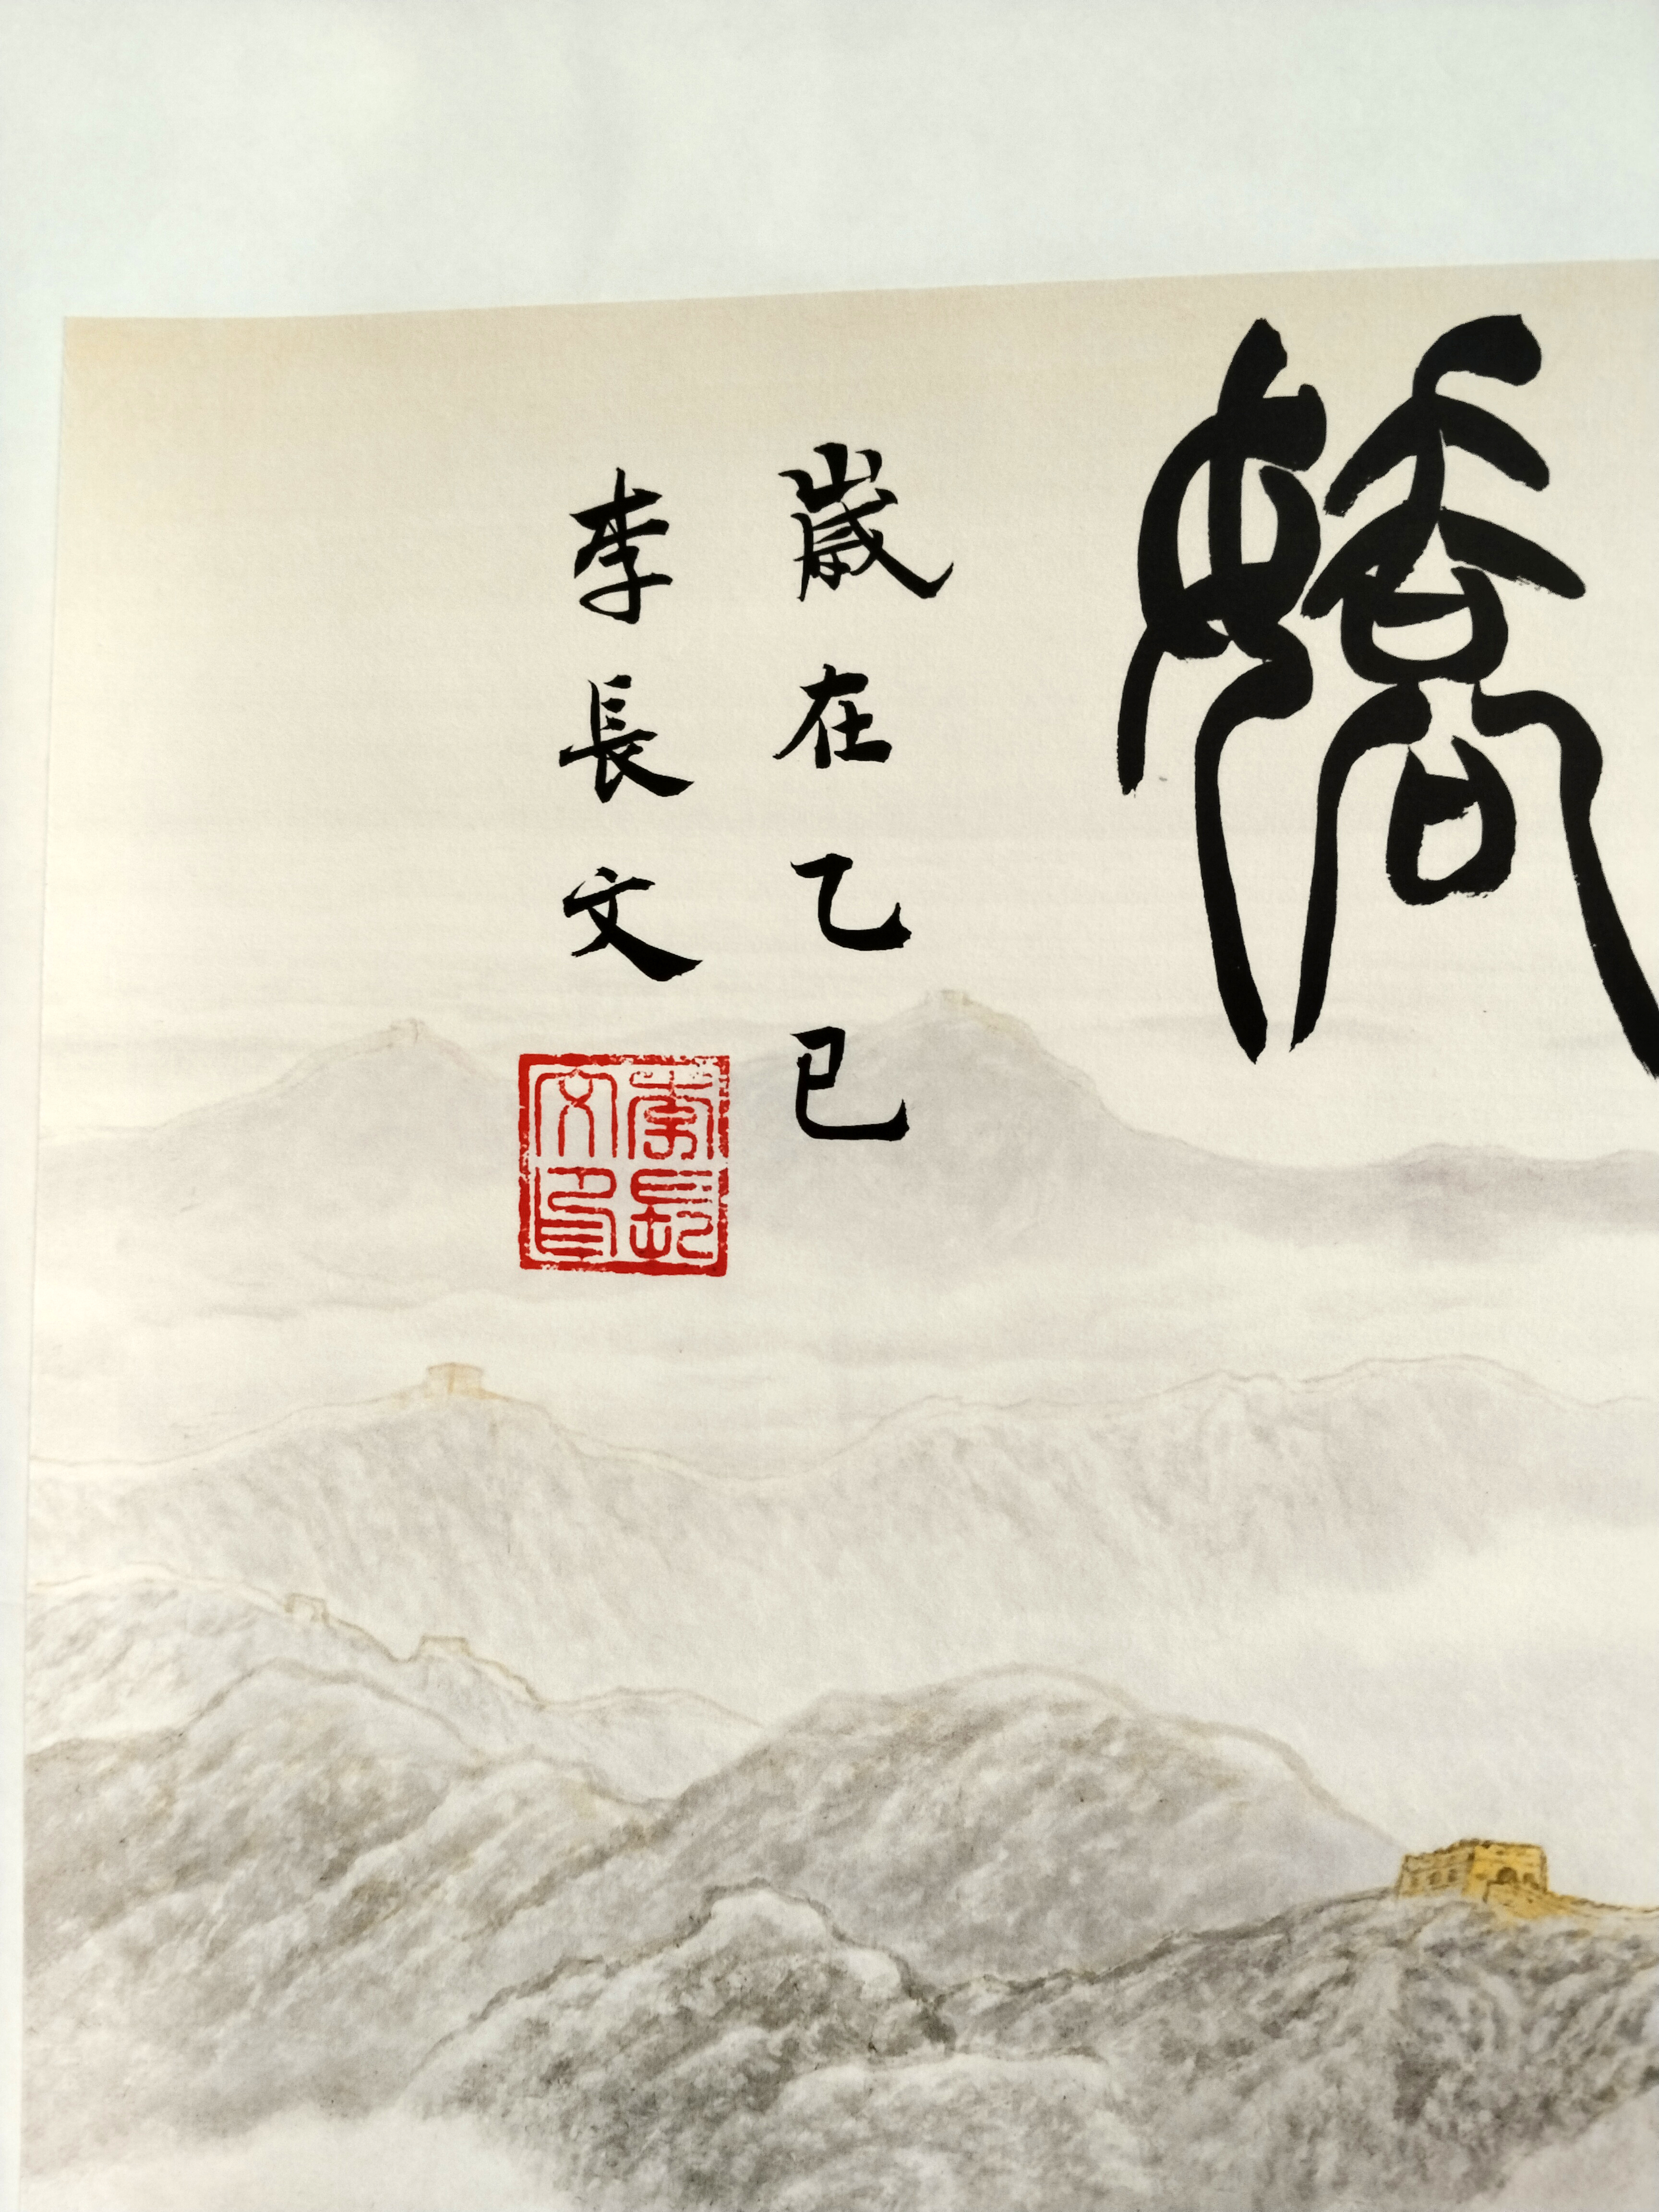 嬌
歲在乙巳
李長文
李長文印